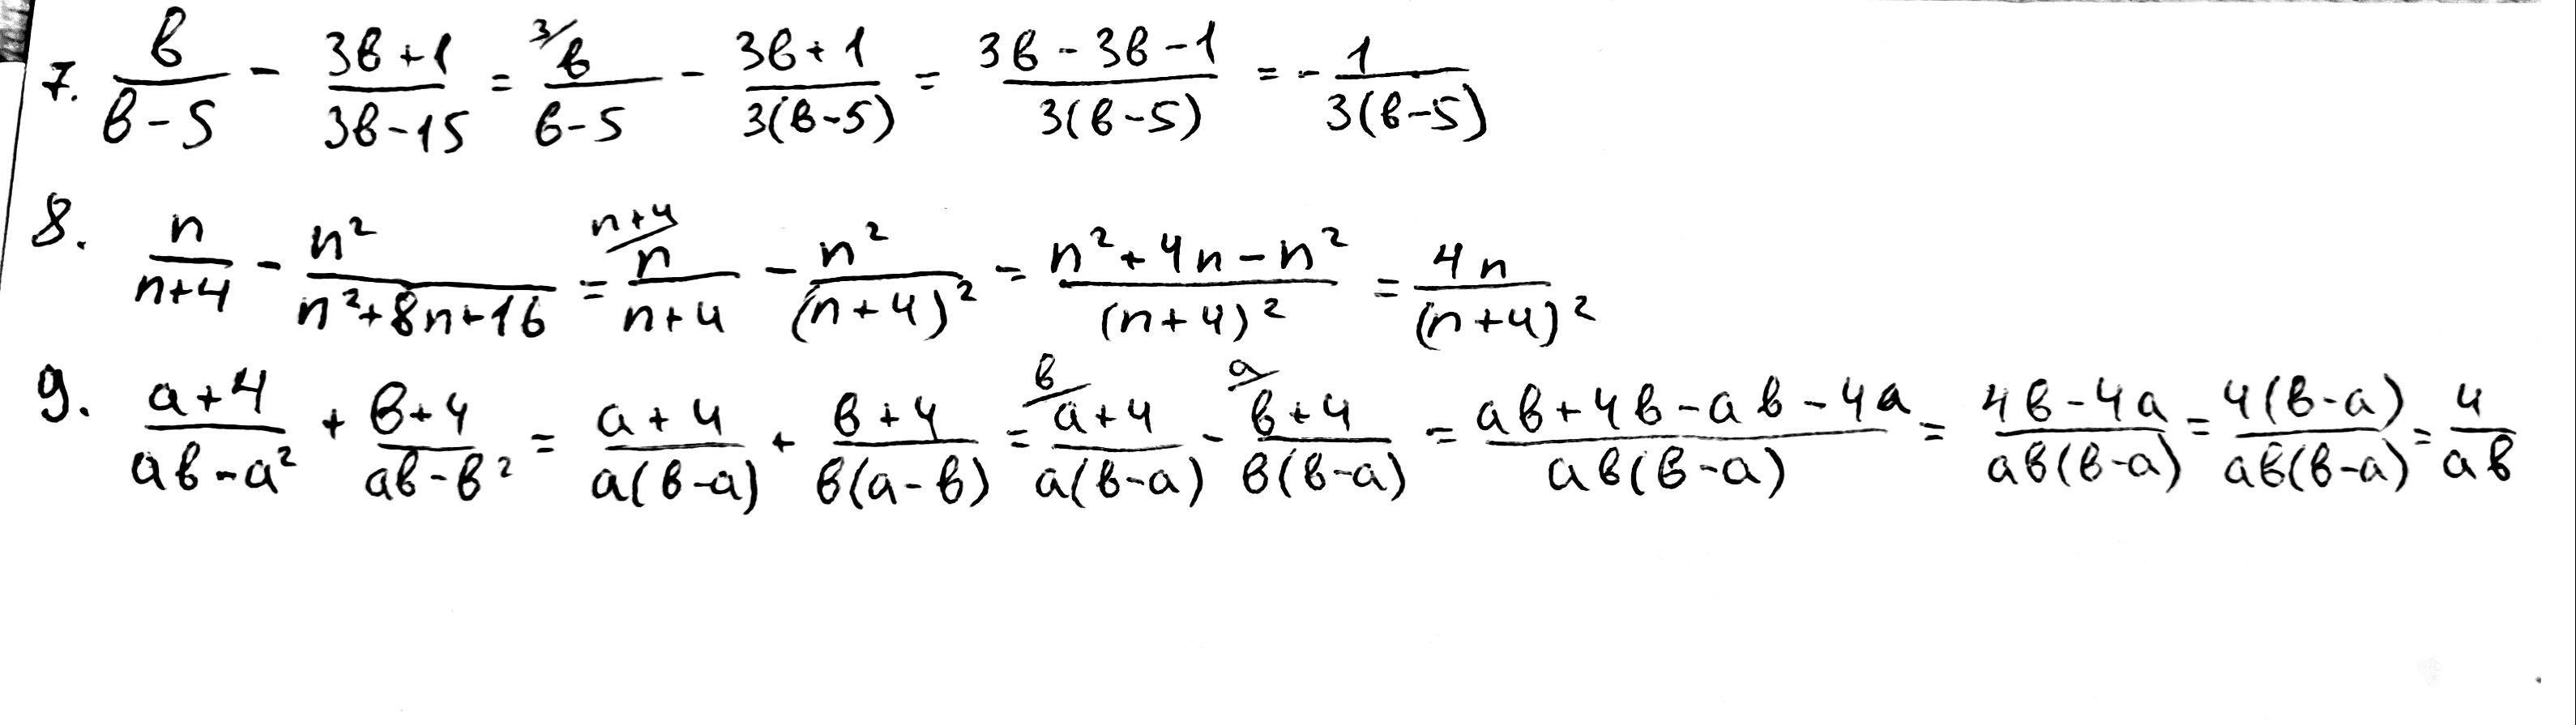 7. \frac{b}{b-5} - \frac{3b+1}{3b-15} = \frac{^{3/}b}{b-5} - \frac{3b+1}{3(b-5)} = \frac{3b-3b-1}{3(b-5)} = -\frac{1}{3(b-5)}
8. \frac{n}{n+4} - \frac{n^2}{n^2+8n+16} = \frac{^{n+4/}n}{n+4} - \frac{n^2}{(n+4)^2} = \frac{n^2+4n-n^2}{(n+4)^2} = \frac{4n}{(n+4)^2}
9. \frac{a+4}{ab-a^2} + \frac{b+4}{ab-b^2} = \frac{a+4}{a(b-a)} + \frac{b+4}{b(a-b)} = \frac{^{b/}a+4}{a(b-a)} - \frac{^{a/}b+4}{b(b-a)} = \frac{ab+4b-ab-4a}{ab(b-a)} = \frac{4b-4a}{ab(b-a)} = \frac{4(b-a)}{ab(b-a)} = \frac{4}{ab}